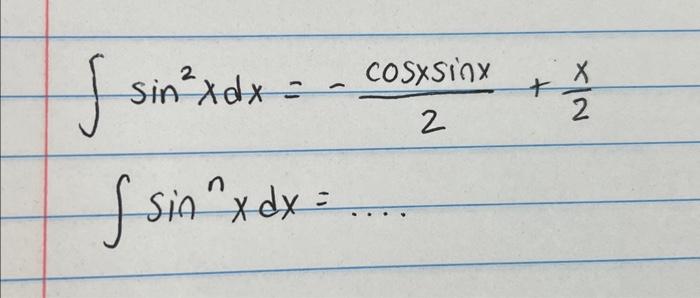 ∫ sin²xdx = - cosxsinx/2 + x/2
∫ sinⁿxdx = ....